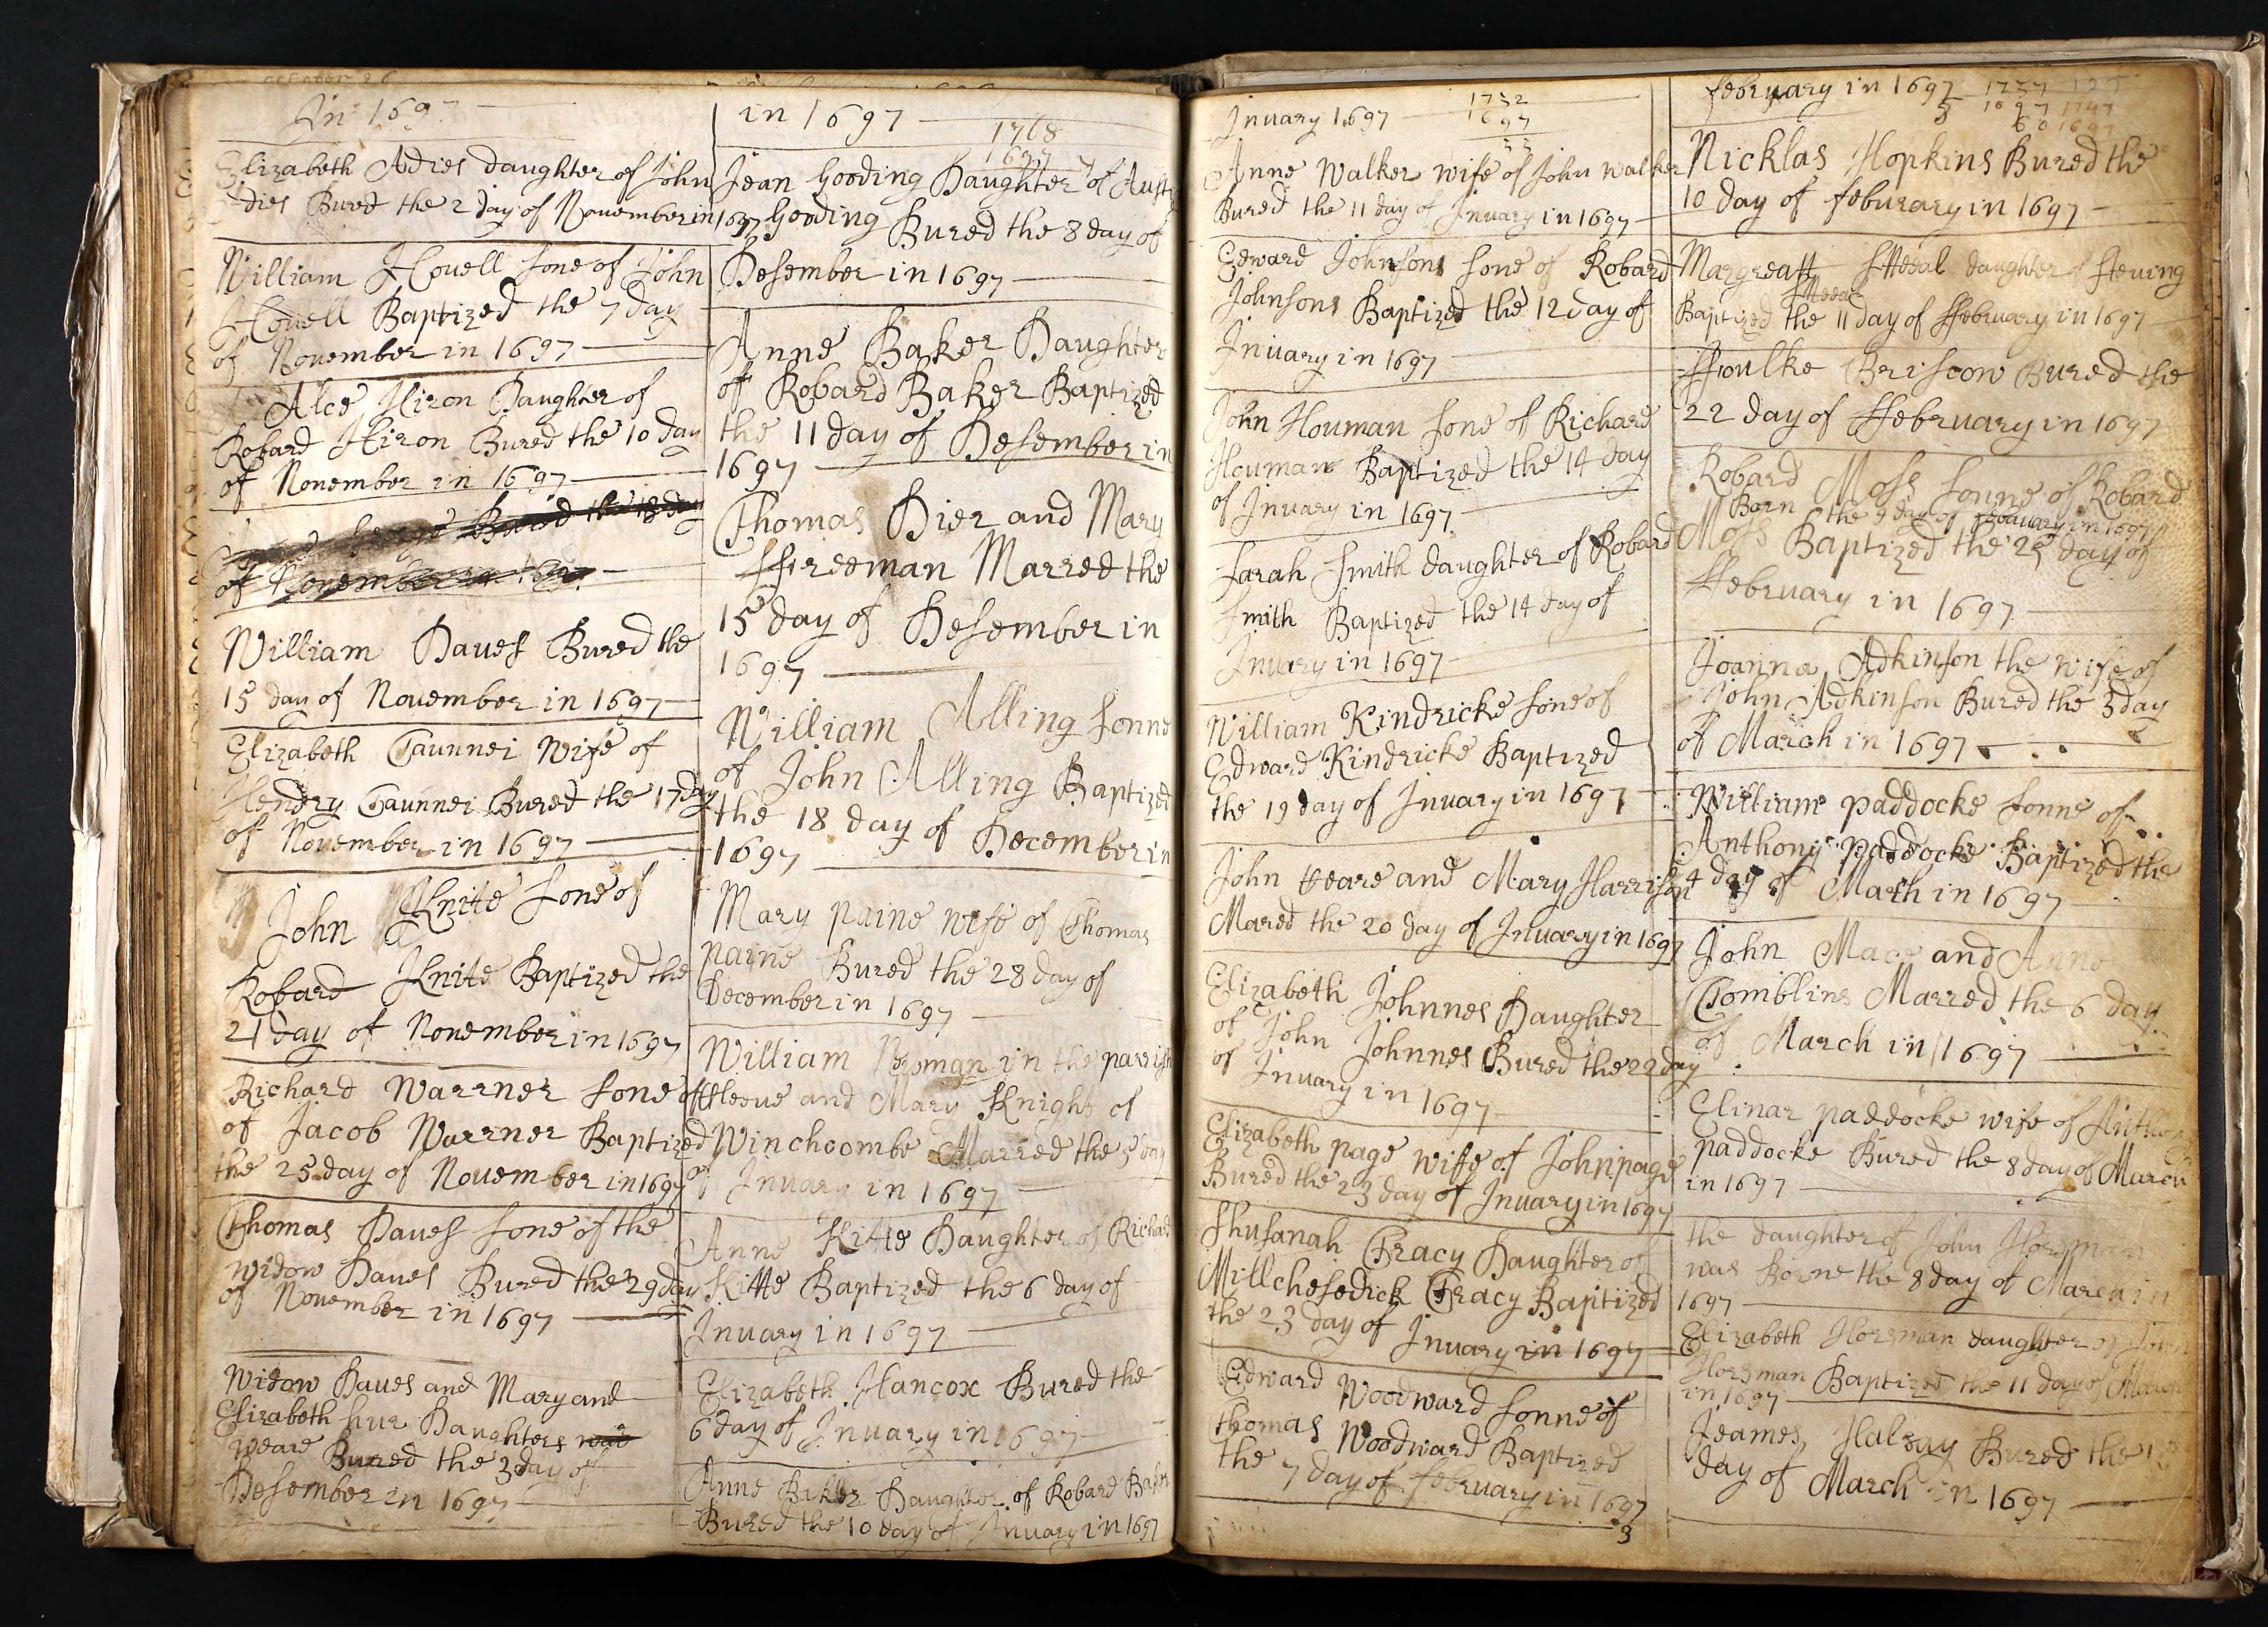 In 169
Elizabeth Adies daughter of John
dies Bured the 2 day of November in 1697
William Howell sone of John
Howell Baptized the 7 day
of November in 1697
Alce Hiron Daughter of
Robard Hiron Bured the 10 day
of November in 1697
Bured the 18 day
of November in 1697
William Daues Bured the
15 day of November in 1697
Elizabeth Taunnei Wife of
Hendry Taunnei Bured the 17 day
of November in 1697
John Knite sone of
Robard Knite Baptized the
21 day of November in 1697
Richard Warrner sone of
of Jacob Warrner Baptized
the 25 day of November in 1697
Thomas Daues sone of the
widow Daues Bured the 29 day
of November in 1697
Widow Daues and Mary and
Elizabeth hur Daughters
weare Bured the 3 day of
Desember in 1697
in 1697
1768
1697
Jean Gooding Daughter of
Gooding Bured the 8 day of
Desember in 1697
Anne Baker Daughter
of Robard Baker Baptized
the 11 day of Desember in
1697
Thomas Dier and Mary
ffreeman Marred the
15 day of Desember in
1697
William Alling sonne
of John Alling Baptized
the 18 day of December in
1697
Mary paine wife of Thomas
paine Bured the 28 day of
December in 1697
William in the parrish
and Mary Knight of
Winchcombe Marred the 5 day
of Inuary in 1697
Anne Kitte Daughter of Richard
Kitte Baptized the 6 day of
Inuary in 1697
Elizabeth Hancox Bured the
6 day of Inuary in 1697
Anne Baker Daughter of Robard Baker
Bured the 10 day of Inuary in 1697
Inuary 1697
1732
1697
Anne Walker wife of John Walker
Bured the 11 day of Inuary in 1697
Edward Johnsons sone of Robard
Johnsons Baptized the 12 day of
Inuary in 1697
John Houman sone of Richard
Houman Baptized the 14 day
of Inuary in 1697
Sarah Smith daughter of Robard
Smith Baptized the 14 day of
Inuary in 1697
William Kindricke sone of
Edward Kindricke Baptized
the 19 day of Inuary in 1697
John and Mary Harrison
Mared the 20 day of Inuary in 1697
Elizabeth Johnnes Daughter
of John Johnnes Bured the 22 day
of Inuary in 1697
Elizabeth page wife of John page
Bured the 23 day of Inuary in 1697
Shusanah Tracy Daughter of
Millchesedick Tracy Baptized
the 23 day of Inuary in 1697
Edward Woodward sonne of
Thomas Woodward Baptized
the 7 day of february in 1697
3
february in 1697
1757
1697
60
1747
1697
Nicklas Hopkins Bured the
10 day of feburary in 1697
Margreatt Sttedal daughter of steuing
Baptized the 11 day of ffebruary in 1697
ffoulke Briscow Bured the
22 day of ffebruary in 1697
Robard Moss sonne of Robard
Born the 9 day of in 1697
Moss Baptized the 25 day of
ffebruary in 1697
Joanna Adkinson the wife of
John Adkinson Bured the 3 day
of March in 1697
William paddocke sonne of
Anthony paddocke Baptized the
4 day of March in 1697
John Mace and Anne
Tomblins Marred the 6 day
of March in 1697
Elinar paddocke wife of
paddocke Bured the 8 day of March
in 1697
the daughter of John Horsman
was Borne the 8 day of March in
1697
Elizabeth Horsman daughter of John
Horsman Baptized the 11 day of March
in 1697
Jeames Halzay Bured the
day of March in 1697